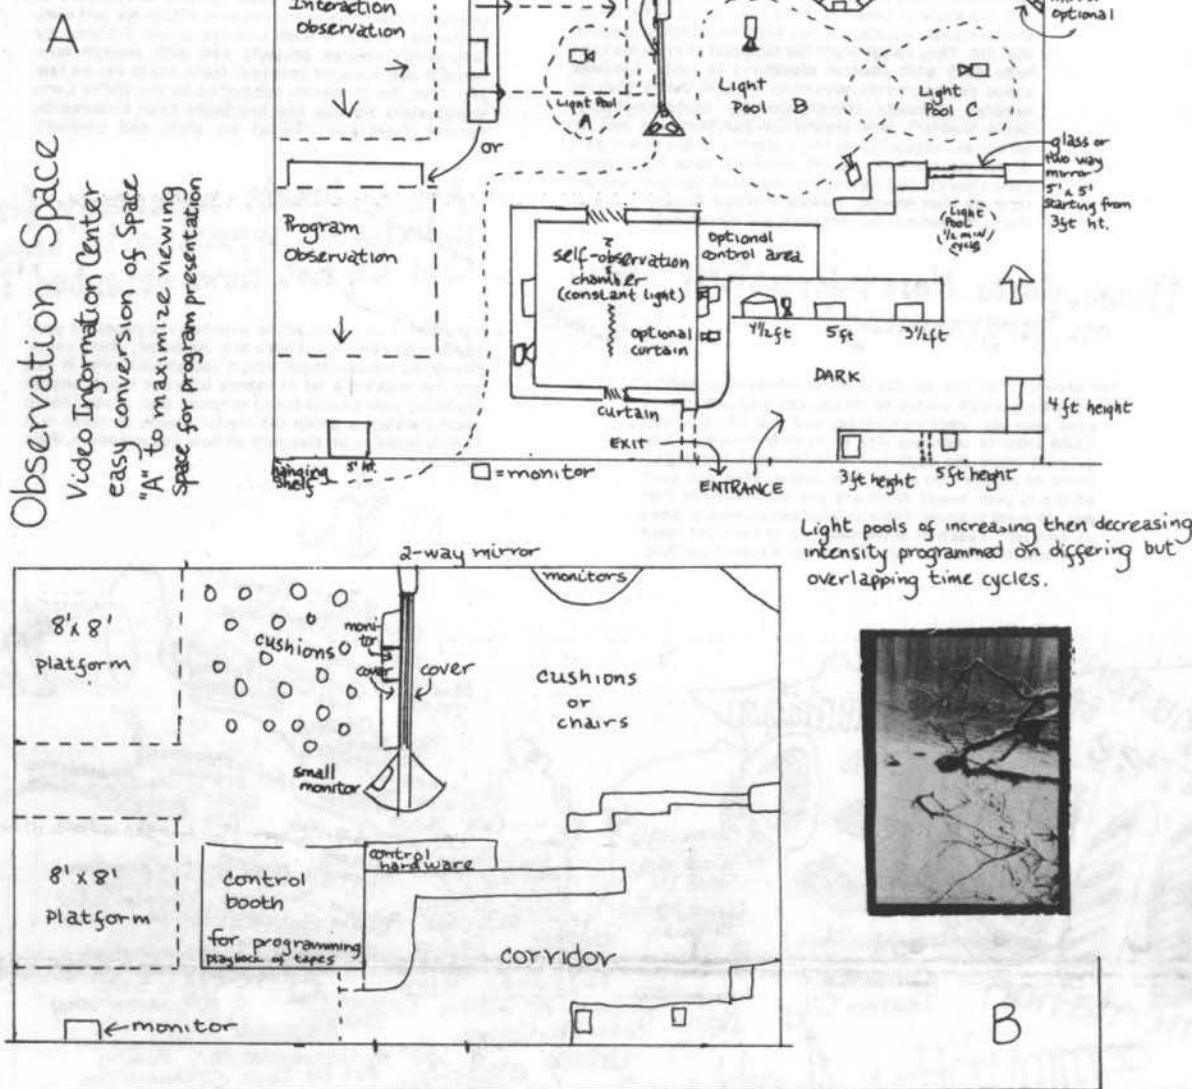 A
Observation Space
Video Information Center
easy conversion of Space
"A" to maximize viewing
Space for program presentation
Interaction
Observation
or
Program
Observation
hanging
shelf
5' ht.
Light Pool
A
Light
Pool B
Light
Pool C
optional
glass or
two way
mirror
5' x 5'
starting from
3ft ht.
Light
Pool
(1/2 min/
cycle)
self-observation
chamber
(constant light)
optional
control area
optional
curtain
4 1/2 ft
5 ft
3 1/2 ft
DARK
curtain
EXIT
ENTRANCE
=monitor
3ft height
5ft height
4ft height
Light pools of increasing then decreasing
intensity programmed on differing but
overlapping time cycles.
2-way mirror
monitors
8' x 8'
platform
cushions
moni-
tor
cover
cover
cushions
or
chairs
small
monitor
8' x 8'
Platform
control
booth
for programming
playback of tapes
control
hardware
corridor
monitor
B